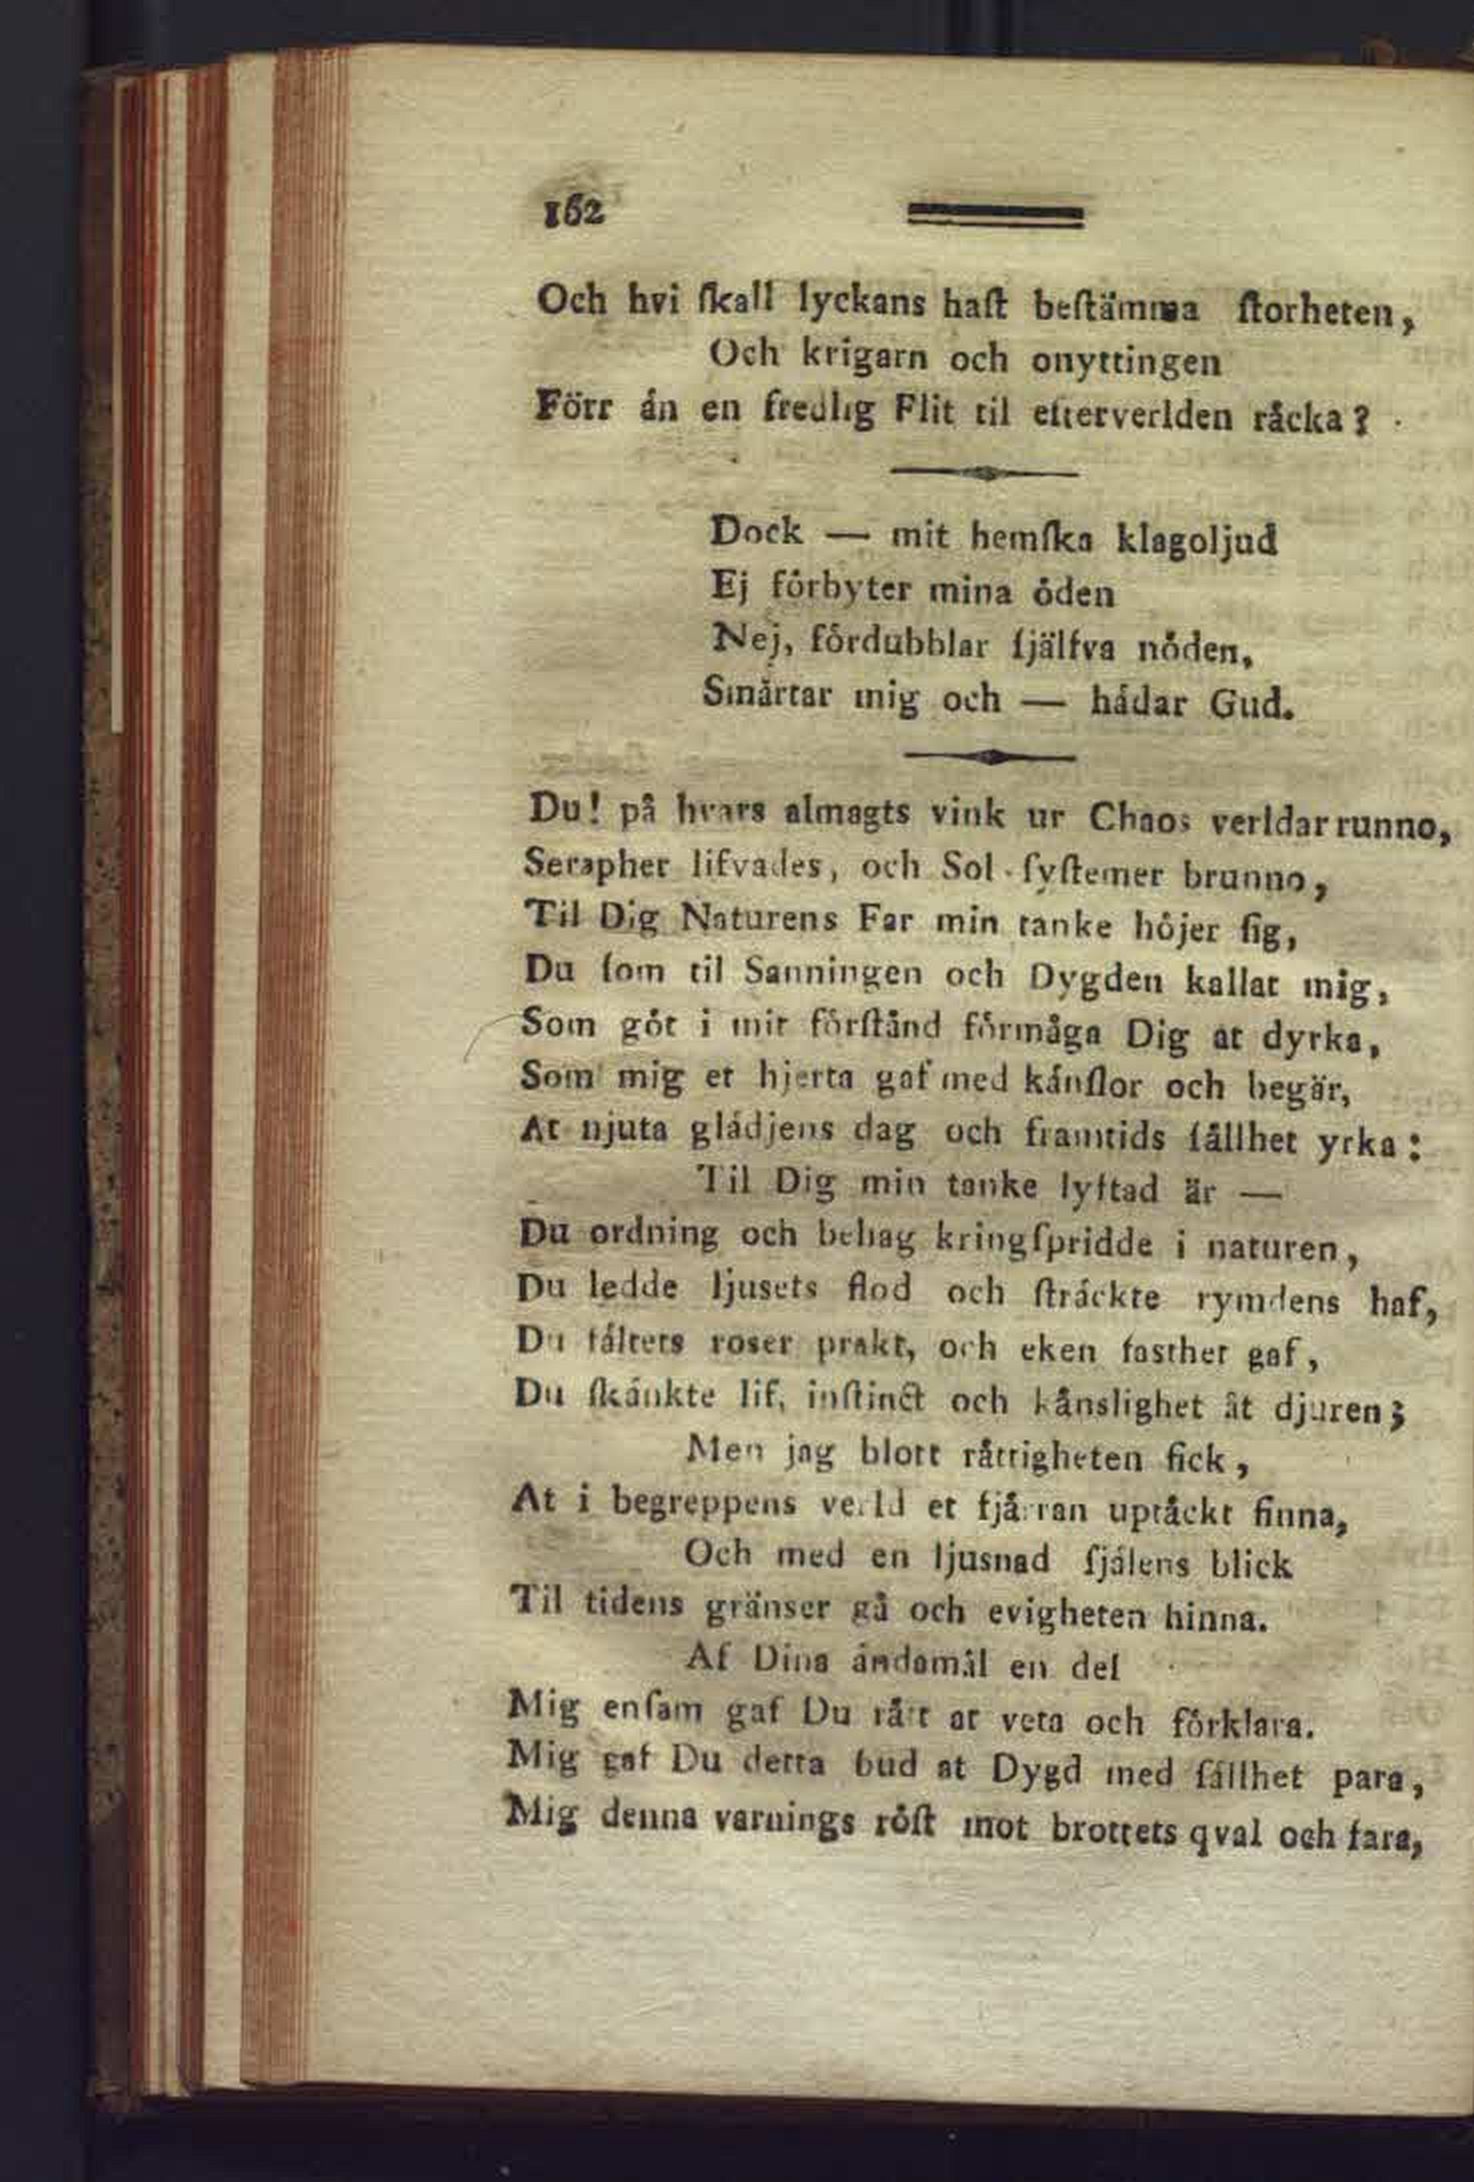 162
Och hvi ſkall lyckans haſt beſtämma ſtorheten,
Och krigarn och onyttingen
Förr än en fredlig Flit til efterverlden räcka?
Dock — mit hemſka klagoljud
Ej förbyter mina öden
Nej, fördubblar ſjälfva nöden,
Smärtar mig och — hädar Gud.
Du! på hvars almagts vink ur Chaos verldar runno,
Serapher lifvades, och Sol-ſyſtemer brunno,
Til Dig Naturens Far min tanke höjer ſig,
Du ſom til Sanningen och Dygden kallat mig,
Som göt i mit förſtånd förmåga Dig at dyrka,
Som mig et hjerta gaf med känſlor och begär,
At njuta glädjens dag och framtids ſällhet yrka:
Til Dig min tanke lyftad är —
Du ordning och behag kringſpridde i naturen,
Du ledde ljusets flod och ſträckte rymdens haf,
Du fältets roser prakt, och eken fasthet gaf,
Du ſkänkte lif, inſtinct och känslighet åt djuren;
Men jag blott rättigheten fick,
At i begreppens verld et fjärran uptäckt finna,
Och med en ljusnad ſjälens blick
Til tidens gränser gå och evigheten hinna.
Af Dina ändamål en del
Mig enſam gaf Du rätt at veta och förklara.
Mig gaf Du detta bud at Dygd med ſällhet para,
Mig denna varnings röſt mot brottets qval och fara,